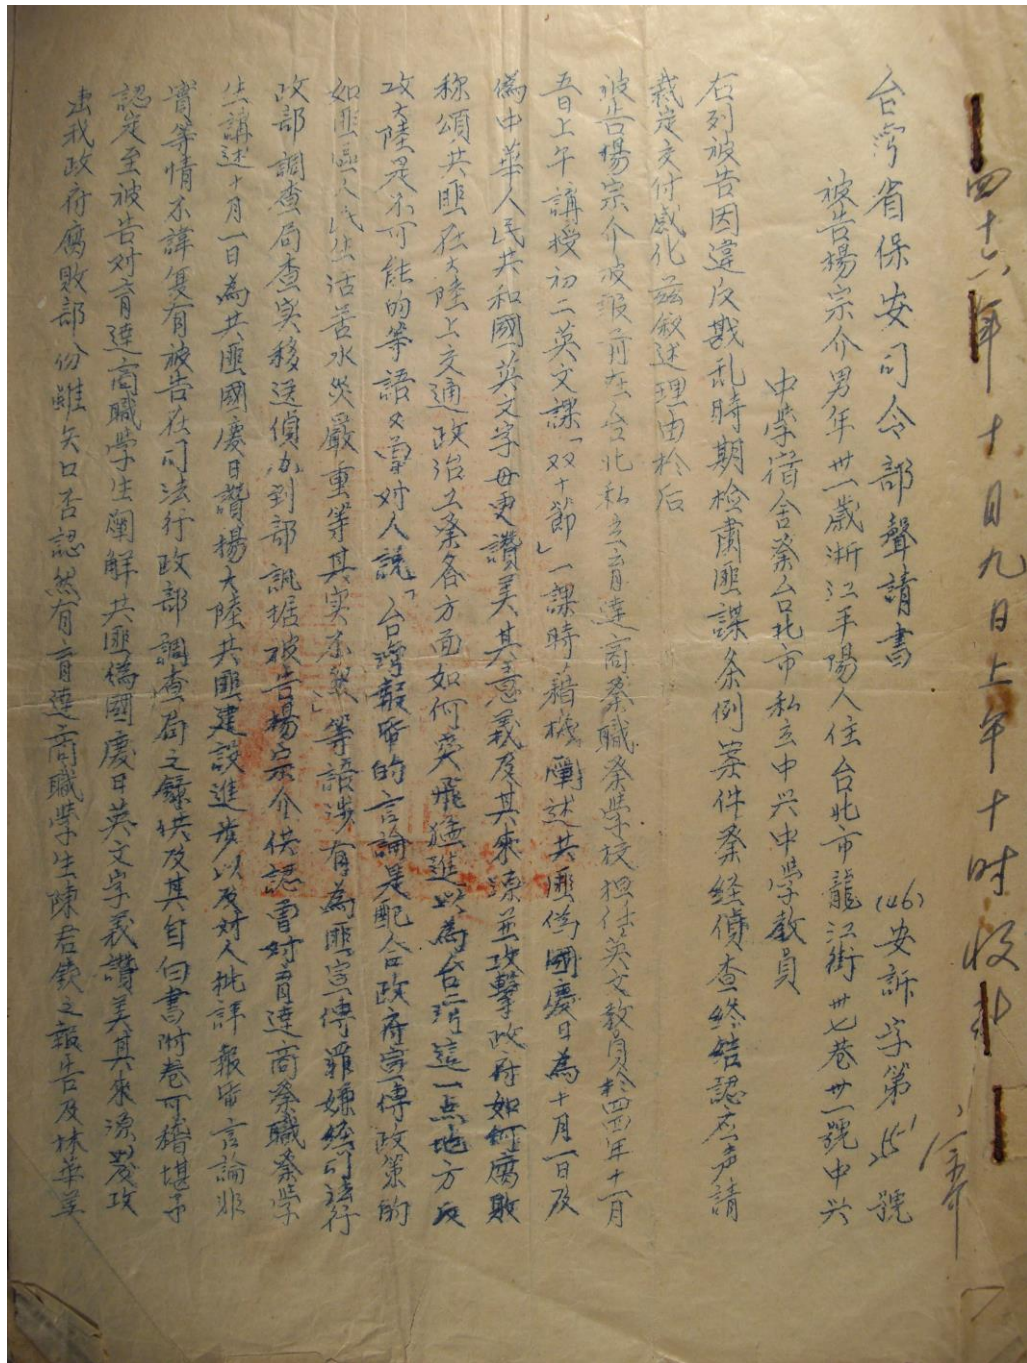 四十六年十月九日上午十时收到
台湾省保安司令部聲請書
(46)安訴字第 號
被告楊宗介男年卅一歲浙江平陽人住台北市龍江街卅七巷廿一號中兴
中学宿舍業台北市私立中兴中学教員
右列被告因違反戡乱時期检肅匪諜条例案件業経偵查終結認应声請
裁定交付感化兹敘述理由於后
被告楊宗介被報前在台北私立育達商業職業学校担任英文教員於四四年十一月
五日上午講授初二英文課「双十節」一課時藉機闡述共匪偽國慶日為十月一日及
偽中華人民共和國英文字母更讚美其意義及其來源並攻擊政府如何腐敗
称頌共匪在大陸上交通政治工業各方面如何突飛猛進以為台湾這一点地方反
攻大陸是不可能的等語又曾对人說「台灣報帋的言論是配合政府宣傳政策的
如匪區人民生活苦水災嚴重等其实不然」等語涉有為匪宣傳罪嫌経司法行
政部調查局查实移送偵办到部訊据被告楊宗介供認曾对育達商業職業学
生講述十月一日為共匪國慶日讚揚大陸共匪建設進步以及对人批評報帋言論非
實等情不諱复有被告在司法行政部調查局之錄供及其自白書附卷可稽堪予
認定至被告对育達商職学生闡解共匪偽國慶日英文字義讚美其來源以及攻
击我政府腐敗部份雖矢口否認然有育達商職学生陳君欽之報告及林華